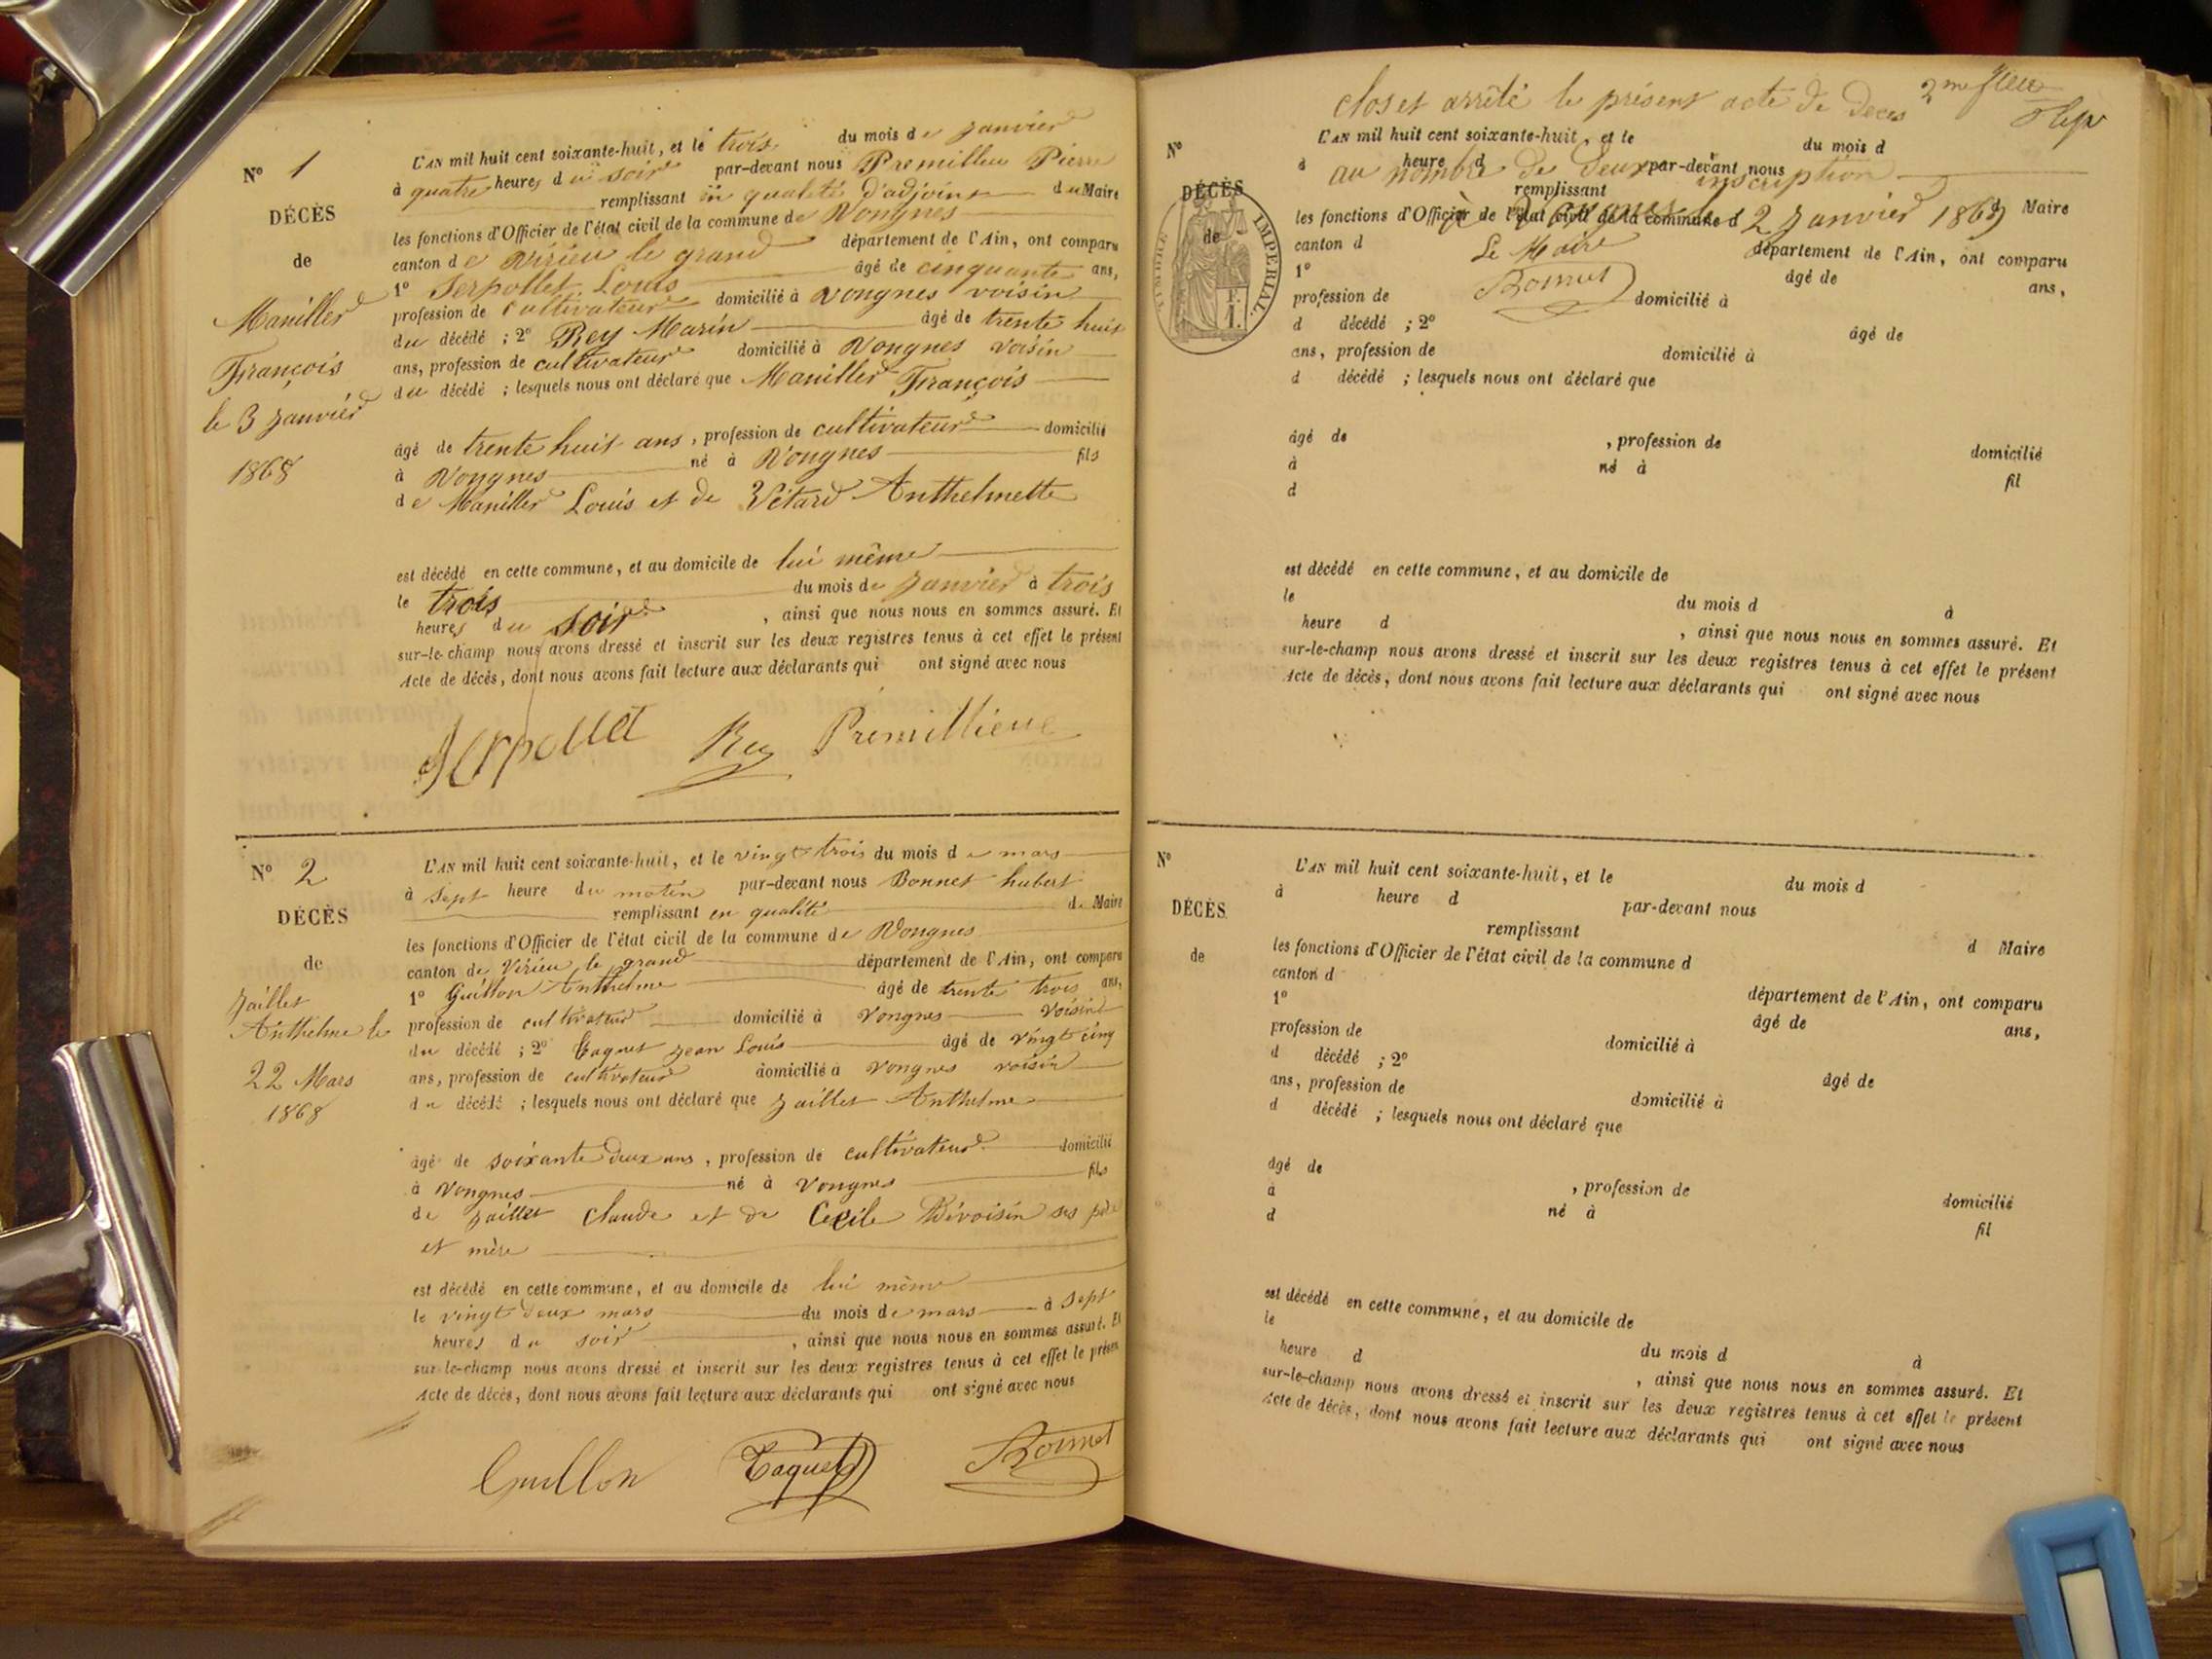 N° 1
DÉCÈS
de
Maniller
François
le 3 Janvier
1868
L'AN mil huit cent soixante-huit, et le trois du mois de Janvier
à quatre heures du soir par-devant nous Premillieu Pierre
remplissant en qualité d'adjoint du Maire
les fonctions d'Officier de l'état civil de la commune de Vongnes
canton de Virieu le grand département de l'Ain, ont comparu
1° Serpollet Louis âgé de cinquante ans,
profession de cultivateur domicilié à Vongnes voisin
du décédé ; 2° Rey Marin âgé de trente huit
ans, profession de cultivateur domicilié à Vongnes voisin
du décédé ; lesquels nous ont déclaré que Maniller François
âgé de trente huit ans, profession de cultivateur domicilié
à Vongnes né à Vongnes fils
de Maniller Louis et de Vétard Anthelmette
est décédé en cette commune, et au domicile de lui même
le trois du mois de Janvier à trois
heures du soir, ainsi que nous nous en sommes assuré. Et
sur-le-champ nous avons dressé et inscrit sur les deux registres tenus à cet effet le présent
Acte de décès, dont nous avons fait lecture aux déclarants qui ont signé avec nous
Serpollet Rey Prémillieue
N° 2
DÉCÈS
de
Jaillet
Anthelme le
22 Mars
1868
L'AN mil huit cent soixante-huit, et le vingt trois du mois de mars
à sept heure du matin par-devant nous Bonnet hubert
remplissant en qualité de Maire
les fonctions d'Officier de l'état civil de la commune de Vongnes
canton de Virieu le grand département de l'Ain, ont comparu
1° Guillon Anthelme âgé de trente trois ans,
profession de cultivateur domicilié à Vongnes voisin
du décédé ; 2° Taquet Jean Louis âgé de vingt cinq
ans, profession de cultivateur domicilié à Vongnes voisin
du décédé ; lesquels nous ont déclaré que Jaillet Anthelme
âgé de soixante deux ans, profession de cultivateur domicilié
à Vongnes né à Vongnes fils
de Jaillet Claude et de Cecile Dévoisin ses père
et mère
est décédé en cette commune, et au domicile de lui même
le vingt deux mars du mois de mars à sept
heures du soir, ainsi que nous nous en sommes assuré. Et
sur-le-champ nous avons dressé et inscrit sur les deux registres tenus à cet effet le présen
Acte de décès, dont nous avons fait lecture aux déclarants qui ont signé avec nous
Guillon Taquet Bonnet
clos et arrêté le présent acte de décès
au nombre de deux inscription
à Vongnes le 2 Janvier 1869
Le Maire
Bonnet
N°
DÉCÈS
de
TIMBRE IMPÉRIAL
1 F.
L'AN mil huit cent soixante-huit, et le du mois d
à heure d par-devant nous
remplissant
les fonctions d'Officier de l'état civil de la commune d d Maire
canton d département de l'Ain, ont comparu
1° âgé de ans,
profession de domicilié à
d décédé ; 2° âgé de
ans, profession de domicilié à
d décédé ; lesquels nous ont déclaré que
âgé de , profession de domicilié
à né à fil
d
est décédé en cette commune, et au domicile de
le du mois d à
heure d , ainsi que nous nous en sommes assuré. Et
sur-le-champ nous avons dressé et inscrit sur les deux registres tenus à cet effet le présent
Acte de décès, dont nous avons fait lecture aux déclarants qui ont signé avec nous
N°
DÉCÈS
de
L'AN mil huit cent soixante-huit, et le du mois d
à heure d par-devant nous
remplissant
les fonctions d'Officier de l'état civil de la commune d d Maire
canton d département de l'Ain, ont comparu
1° âgé de ans,
profession de domicilié à
d décédé ; 2° âgé de
ans, profession de domicilié à
d décédé ; lesquels nous ont déclaré que
âgé de , profession de domicilié
à né à fil
d
est décédé en cette commune, et au domicile de
le du mois d à
heure d , ainsi que nous nous en sommes assuré. Et
sur-le-champ nous avons dressé et inscrit sur les deux registres tenus à cet effet le présent
Acte de décès, dont nous avons fait lecture aux déclarants qui ont signé avec nous